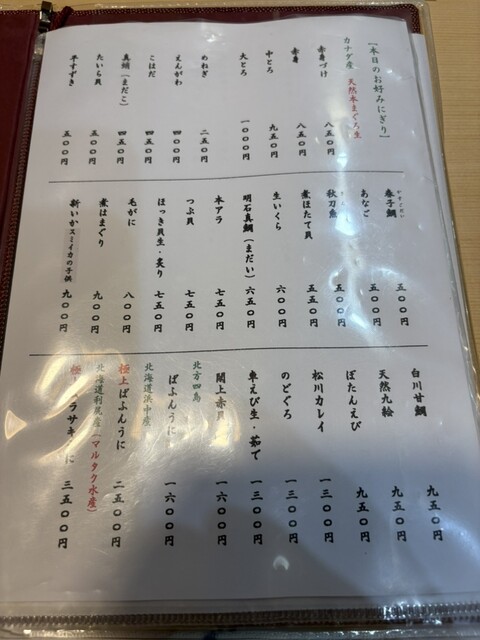 ［本日のお好みにぎり］
カナダ産 天然本まぐろ生
赤身づけ 八五〇円
赤身 八五〇円
中とろ 九五〇円
大とろ 一〇〇〇円
めねぎ 二五〇円
えんがわ 四〇〇円
こはだ 四五〇円
真鮹（まだこ） 四五〇円
たいら貝 五〇〇円
平すずき 五〇〇円
春子鯛 五〇〇円
あなご 五〇〇円
秋刀魚 五〇〇円
煮ほたて貝 五五〇円
生いくら 六〇〇円
明石真鯛（まだい） 六五〇円
本アラ 七五〇円
つぶ貝 七五〇円
ほっき貝生・炙り 七五〇円
毛がに 八〇〇円
煮はまぐり 九〇〇円
新いか スミイカの子供 九〇〇円
白川甘鯛 九五〇円
天然九絵 九五〇円
ぼたんえび 九五〇円
松川カレイ 一三〇〇円
のどぐろ 一三〇〇円
車えび生・茹で 一三〇〇円
閖上赤貝 一六〇〇円
北方四島
ばふんうに 一六〇〇円
北海道浜中産
極上ばふんうに 二五〇〇円
北海道利尻産［マルタク水産］
極 ラサキ に 三五〇〇円